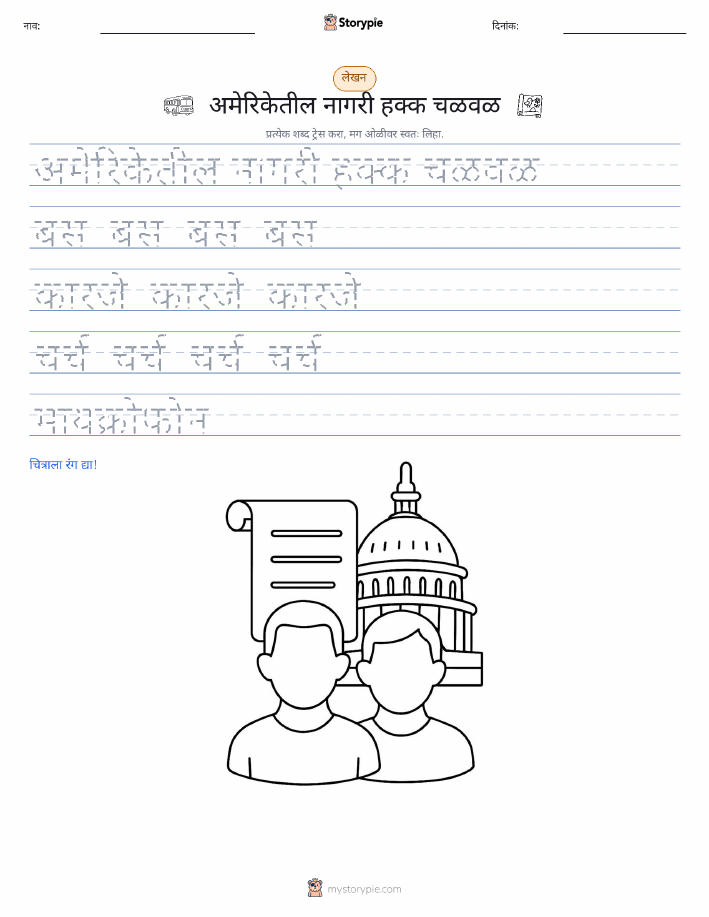 नाव:
Storypie
दिनांक:
लेखन
अमेरिकेतील नागरी हक्क चळवळ
प्रत्येक शब्द ट्रेस करा, मग ओळीवर स्वतः लिहा.
अमेरिकेतील नागरी हक्क चळवळ
बस बस बस बस
कारंजे कारंजे कारंजे
चर्च चर्च चर्च चर्च
मायक्रोफोन
चित्राला रंग द्या!
mystorypie.com